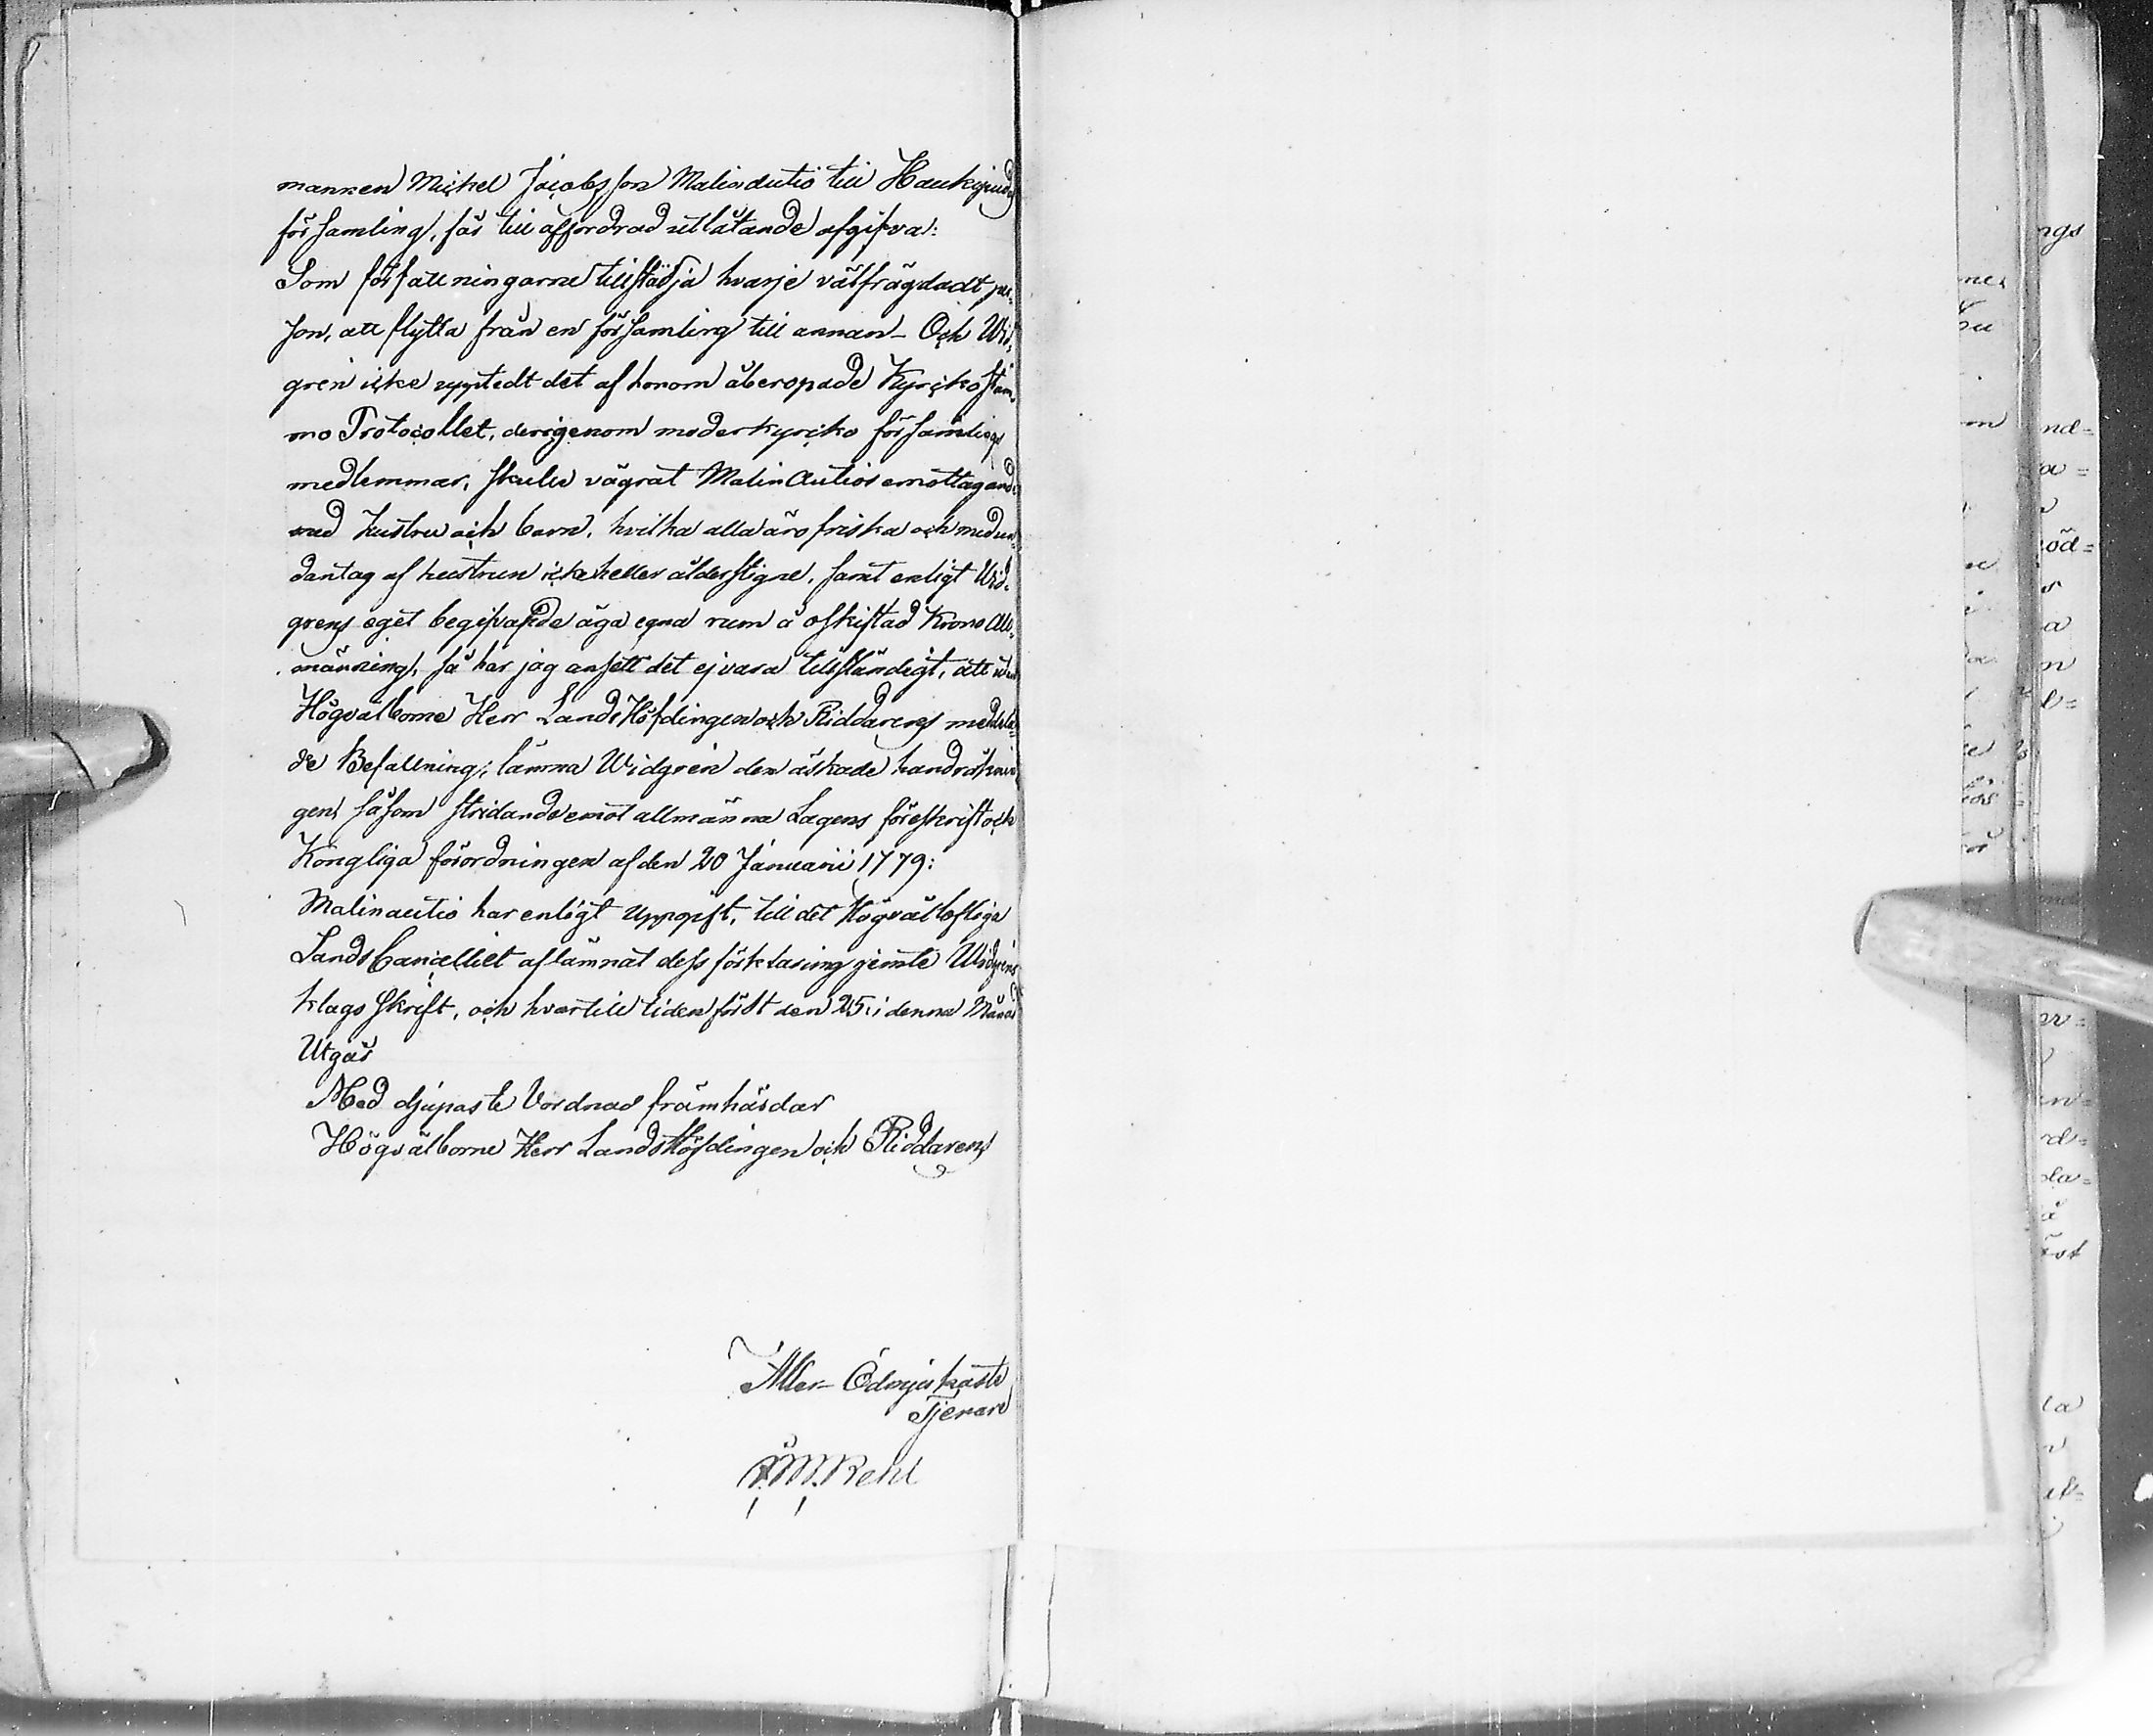 mannen Michel Jacobsson Malinautio till Haukipudas
församling, får till affordrad utlåtande afgifva:
Som författningarne tillstädja hvarje välfrägdadt per-
son, att flytta från en församling till annan – Och Wid-
gren icke upptedt det af honom åberopade Kyrckostäm-
mo Protocollet, derigenom moderkyrcko församlings
medlemmar, skulle vägrat Malinautios emottagande
med hustru och barn, hvilka alla äro friska och med un-
dantag af hustrun icke heller ålderstigne, samt enligt Wid-
grens eget begifvande äga egna rum å oskiftad Krono All-
männing, så har jag ansett det ej vara tillståndigt, att utan
Högvälborne Herr LandsHöfdingen och Riddarens meddela-
de Befallning, lämna Widgren den äskade handräknin-
gen såsom stridande emot allmänna Lagens föreskrift och
Kongliga förordningen af den 20 Januarii 1779:
Malinautio har enligt uppgift, till det Högvällofliga
LandsCancelliet aflämnat dess förklaring jemte Widgrens
klagoskrift, och hvartill tiden först den 25 i denna Månad
Utgår
Med djupaste Vördnad framhärdar
Högvälborne Herr LandsHöfdingen och Riddarens
Aller-Ödmjukaste
Tjenare